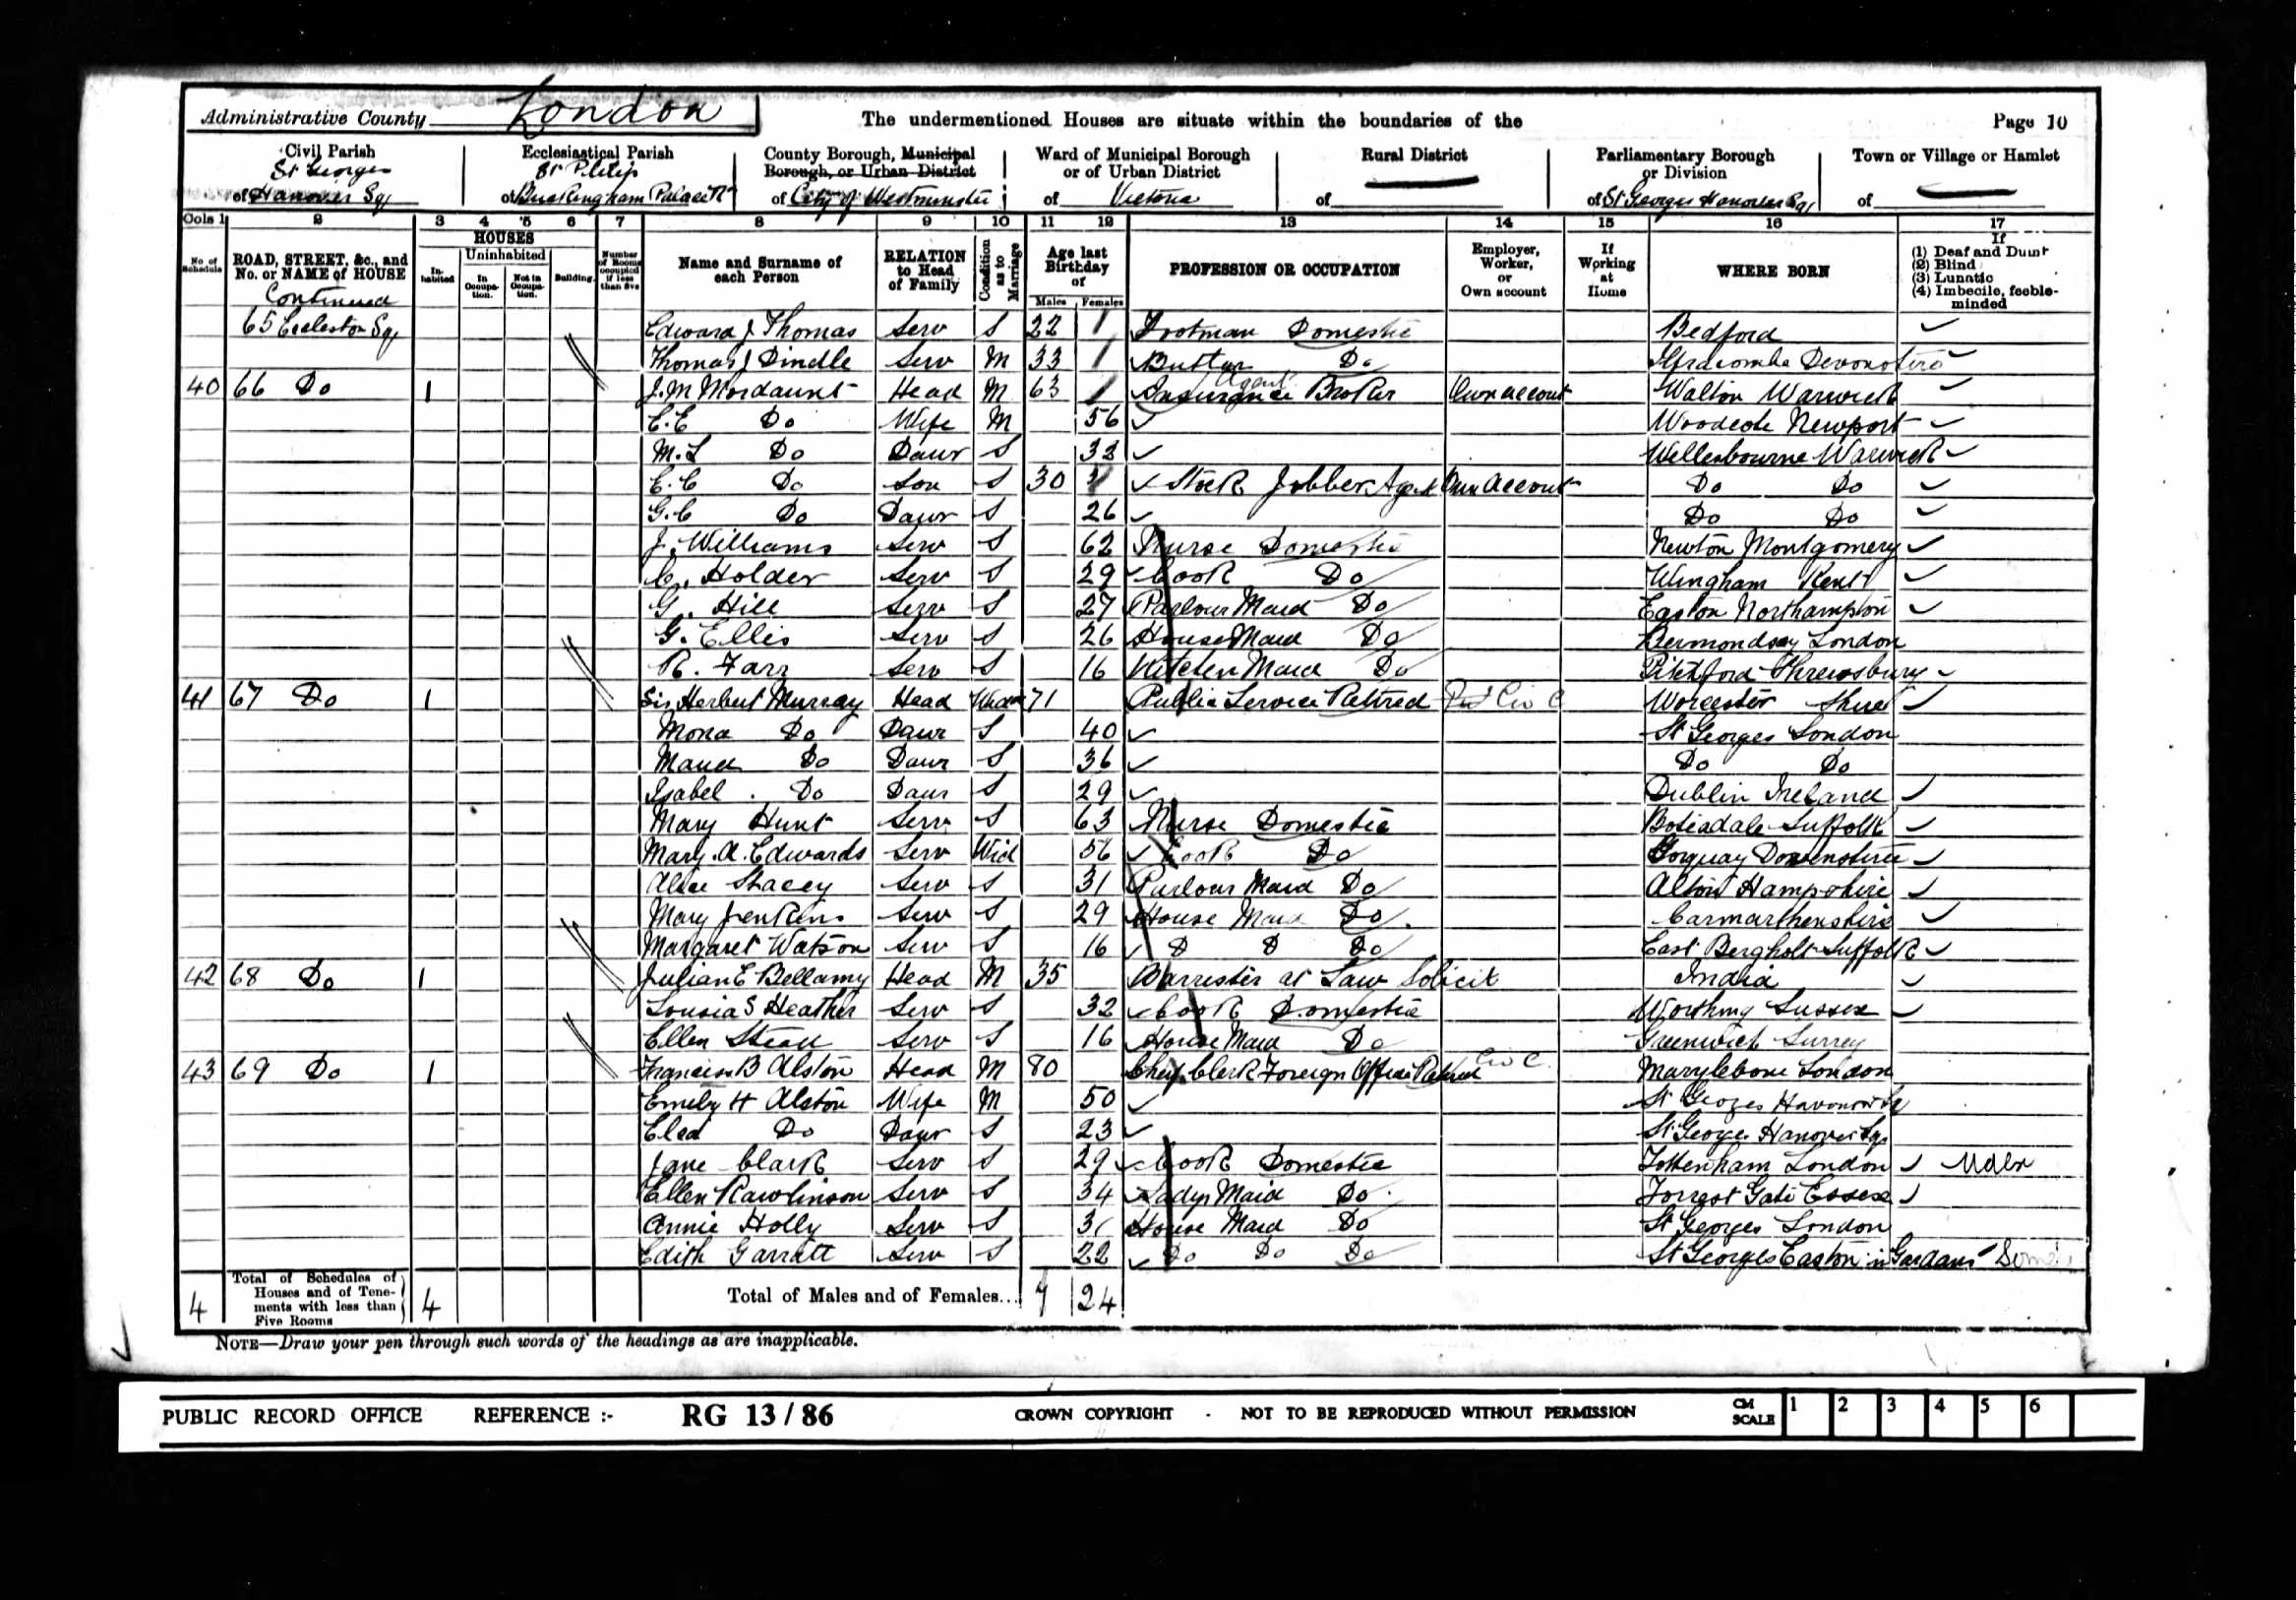 Administrative County London
The undermentioned Houses are situate within the boundaries of the
Page 10
Civil Parish
St Georges
of Hanover Sq
Ecclesiastical Parish
St Philip
of Buckingham Palace Rd
County Borough, Municipal
Borough, or Urban District
of City of Westminster
Ward of Municipal Borough
or of Urban District
of Victoria
Rural District
of
Parliamentary Borough
or Division
of St Georges Hanover Sq
Town or Village or Hamlet
of
Cols 1 2 3 4 5 6 7 8 9 10 11 12 13 14 15 16 17
No. of Schedule
ROAD, STREET, &c., and
No. or NAME of HOUSE
HOUSES
In-habited
Uninhabited
In Occupa-tion.
Not in Occupa-tion.
Building
Number of Rooms occupied if less than five
Name and Surname of
each Person
RELATION
to Head
of Family
Condition as to Marriage
Age last
Birthday
of
Males Females
PROFESSION OR OCCUPATION
Employer,
Worker,
or
Own account
If
Working
at
Home
WHERE BORN
If
(1) Deaf and Dumb
(2) Blind
(3) Lunatic
(4) Imbecile, feeble-
minded
Continued
65 Eccleston Sq Edward J Thomas Serv S 22 Footman Domestic Bedford
Thomas J Dindle Serv M 33 Butler Do Ilfracombe Devonshire
40 66 Do 1 J. M Mordaunt Head M 63 Insurance Agent Broker Own account Walton Warwick
E. E Do Wife M 56 Woodcote Newport
M. L Do Daur S 33 Wellesbourne Warwick
E. C Do Son S 30 Stock Jobber Agent Own Account Do Do
G. C Do Daur S 26 Do Do
J. Williams Serv S 62 Nurse Domestic Newton Montgomery
C. Holder Serv S 29 Cook Do Wingham Kent
G. Hill Serv S 27 Parlour Maid Do Easton Northampton
G. Ellis Serv S 26 House Maid Do Bermondsey London
R. Farr Serv S 16 Kitchen Maid Do Pitchford Shrewsbury
41 67 Do 1 Sir Herbert Murray Head Widr 71 Public Service Retired Civ C Worcester Shire
Mona Do Daur S 40 St Georges London
Maud Do Daur S 36 Do Do
Isabel Do Daur S 29 Dublin Ireland
Mary Hunt Serv S 63 Nurse Domestic Botesdale Suffolk
Mary. A. Edwards Serv Wid 56 Cook Do Torquay Devonshire
Alice Stacey Serv S 31 Parlour Maid Do Alton Hampshire
Mary Jenkins Serv S 29 House Maid Do Carmarthenshire
Margaret Watson Serv S 16 D D Do East Bergholt Suffolk
42 68 Do 1 Julian E Bellamy Head M 35 Barrister at Law Solicit India
Lousia S Heather Serv S 32 Cook Domestic Worthing Sussex
Ellen Serv S 16 House Maid Do Greenwich Surrey
43 69 Do 1 Francis B Alston Head M 80 Chief Clerk Foreign Office Retired Civ C. Marylebone London
Emily H Alston Wife M 50 St Georges Hanover Sq
Do Daur S 23 St Georges Hanover Sq
Jane Clark Serv S 29 Cook Domestic Tottenham London
Ellen Rawlinson Serv S 34 Ladys Maid Do Forrest Gate Essex
Annie Holly Serv S 31 House Maid Do St Georges London
Edith Garratt Serv S 22 Do Do Do St Georges Easton in Gordano
4 Total of Schedules of
Houses and of Tene-
ments with less than
Five Rooms
4 Total of Males and of Females... 7 24
NOTE—Draw your pen through such words of the headings as are inapplicable.
PUBLIC RECORD OFFICE REFERENCE :- RG 13 / 86 CROWN COPYRIGHT - NOT TO BE REPRODUCED WITHOUT PERMISSION CM SCALE 1 2 3 4 5 6